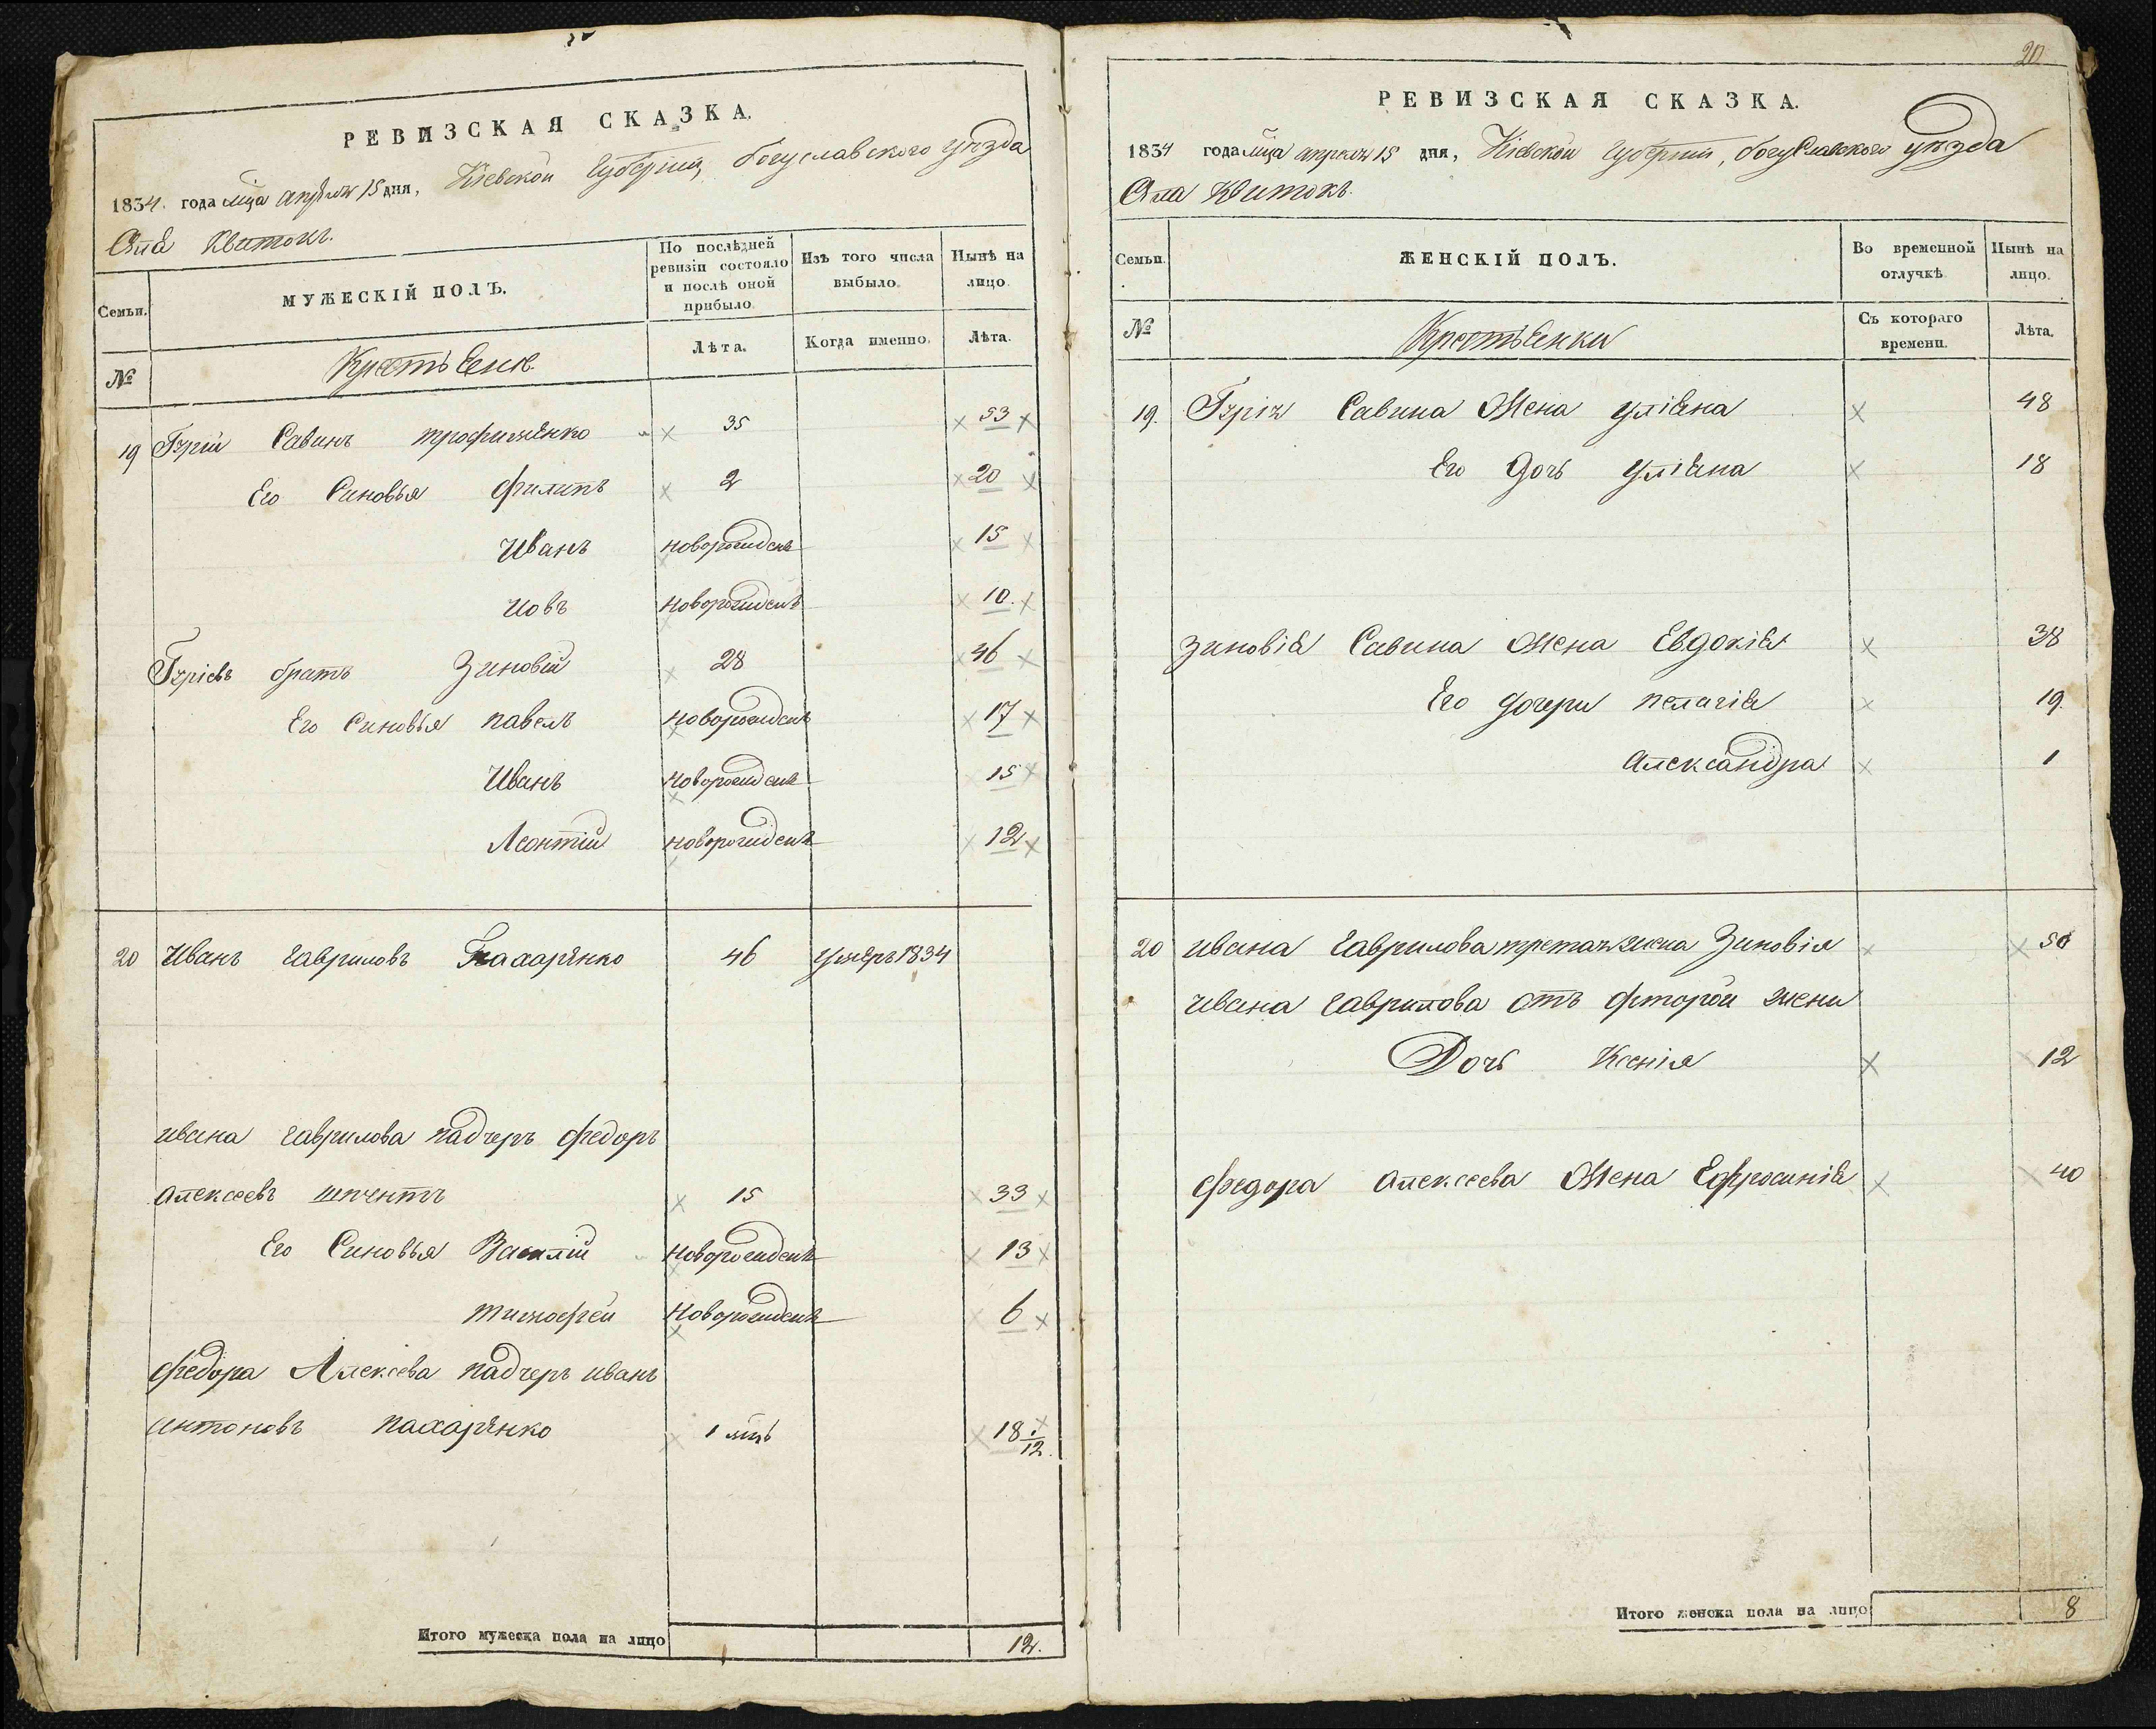 РЕВИЗСКАЯ СКАЗКА.
1834. года мца апреля 15 дня, Кіевской Губерніи, богуславского уезда
Села Квитокъ.
Семьи.
МУЖЕСКІЙ ПОЛЪ.
По послѣдней ревизіи состояло и послѣ оной прибыло.
Изъ того числа выбыло.
Нынѣ на лицо.
№
Крестьене
Лѣта.
Когда именно.
Лѣта.
19 Гурій Савинъ трофименко 35 53
Его Синовья филипъ 2 20
Иванъ новорожденъ 15
Иовъ новорожденъ 10.
Гуріевъ братъ Зиновій 28 46
Его Синовья павелъ новорожденъ 17
Иванъ новорожденъ 15
Леонтій новорожденъ 12
20 Иванъ гавриловъ Пахаренко 46 умеръ 1834
ивана гаврилова падчеръ федоръ
алексеевъ 15 33
Его Синовья Василій новорожденъ 13
тимофей новорожденъ 6
федора Алексева падчеръ иванъ
антоновъ пахаренко 1 мцъ 18 1/12.
Итого мужеска пола на лицо 12.
20
РЕВИЗСКАЯ СКАЗКА.
1834 года мца апреля 15 дня, Кіевской Губерніи, богуславского уезда
Села Квитокъ.
Семьи.
ЖЕНСКІЙ ПОЛЪ.
Во временной отлучкѣ.
Нынѣ на лицо.
№
Крестьенки
Съ котораго времени.
Лѣта.
19. Гурія Савина Жена уліяна 48
Его дочь уліяна 18
зиновія Савина Жена Евдокія 38
Его дочери пелагія 19.
александра 1
20 ивана гаврилова третая жена Зиновія 50
ивана гаврилова отъ фторой жени
Дочь Ксенія 12
федора алексеева Жена Ефросинія 40
Итого женска пола на лицо 8